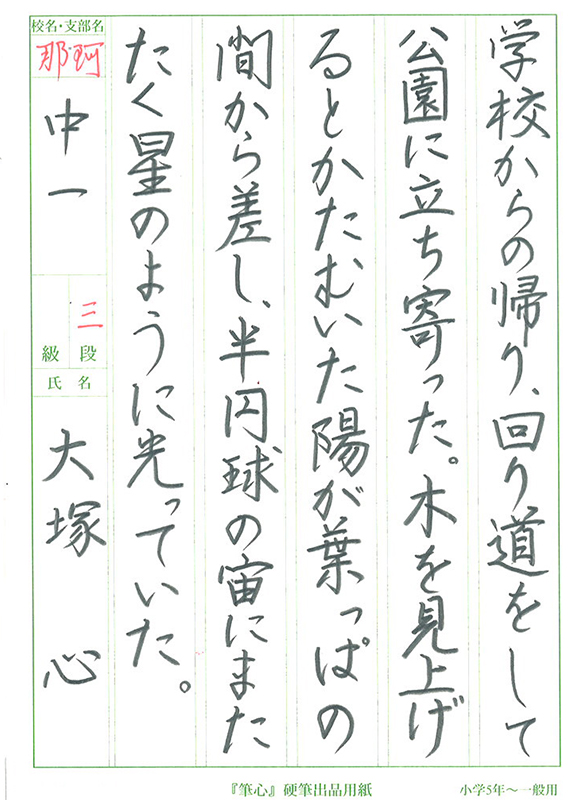 学校からの帰り、回り道をして
公園に立ち寄った。木を見上げ
るとかたむいた陽が葉っぱの
間から差し、半円球の宙にまた
たく星のように光っていた。
校名・支部名
那珂
中一
三
段
級
氏名
大塚 心
『筆心』硬筆出品用紙
小学5年～一般用